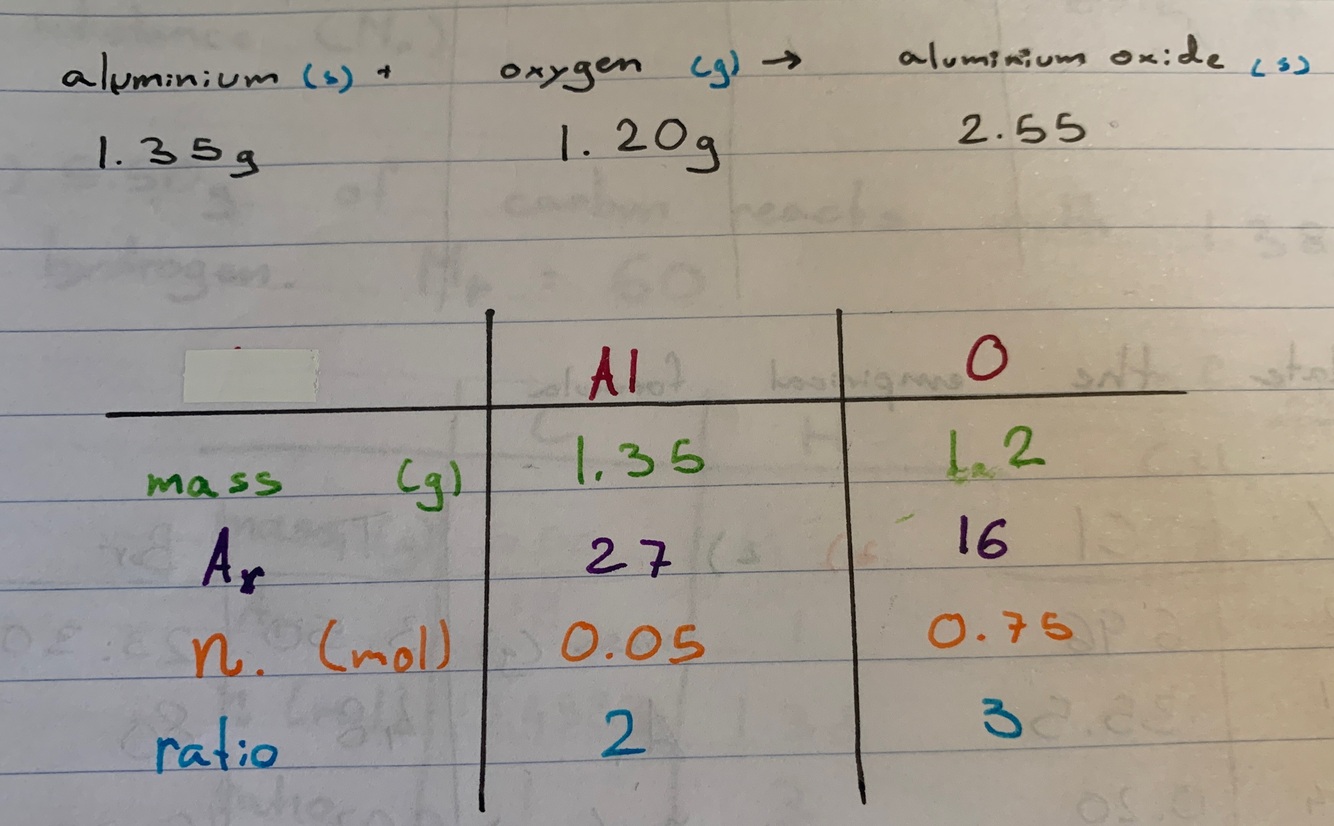 aluminium (s) + oxygen (g) → aluminium oxide (s)
1.35g 1.20g 2.55
Al O
mass (g) 1.35 1.2
Ar 27 16
n. (mol) 0.05 0.75
ratio 2 3